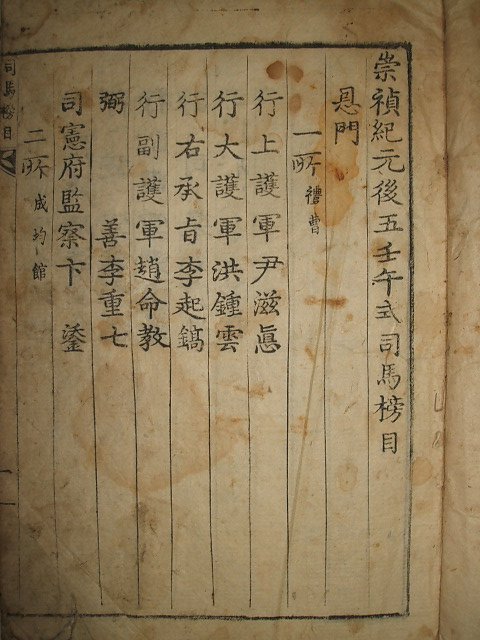 崇禎紀元後五壬午式司馬榜目
恩門
一所 禮曹
行上護軍尹滋悳
行大護軍洪鍾雲
行右承旨李起鎬
行副護軍趙命教
弼善李重七
司憲府監察卞鋈
二所 成均館
司馬榜目
一